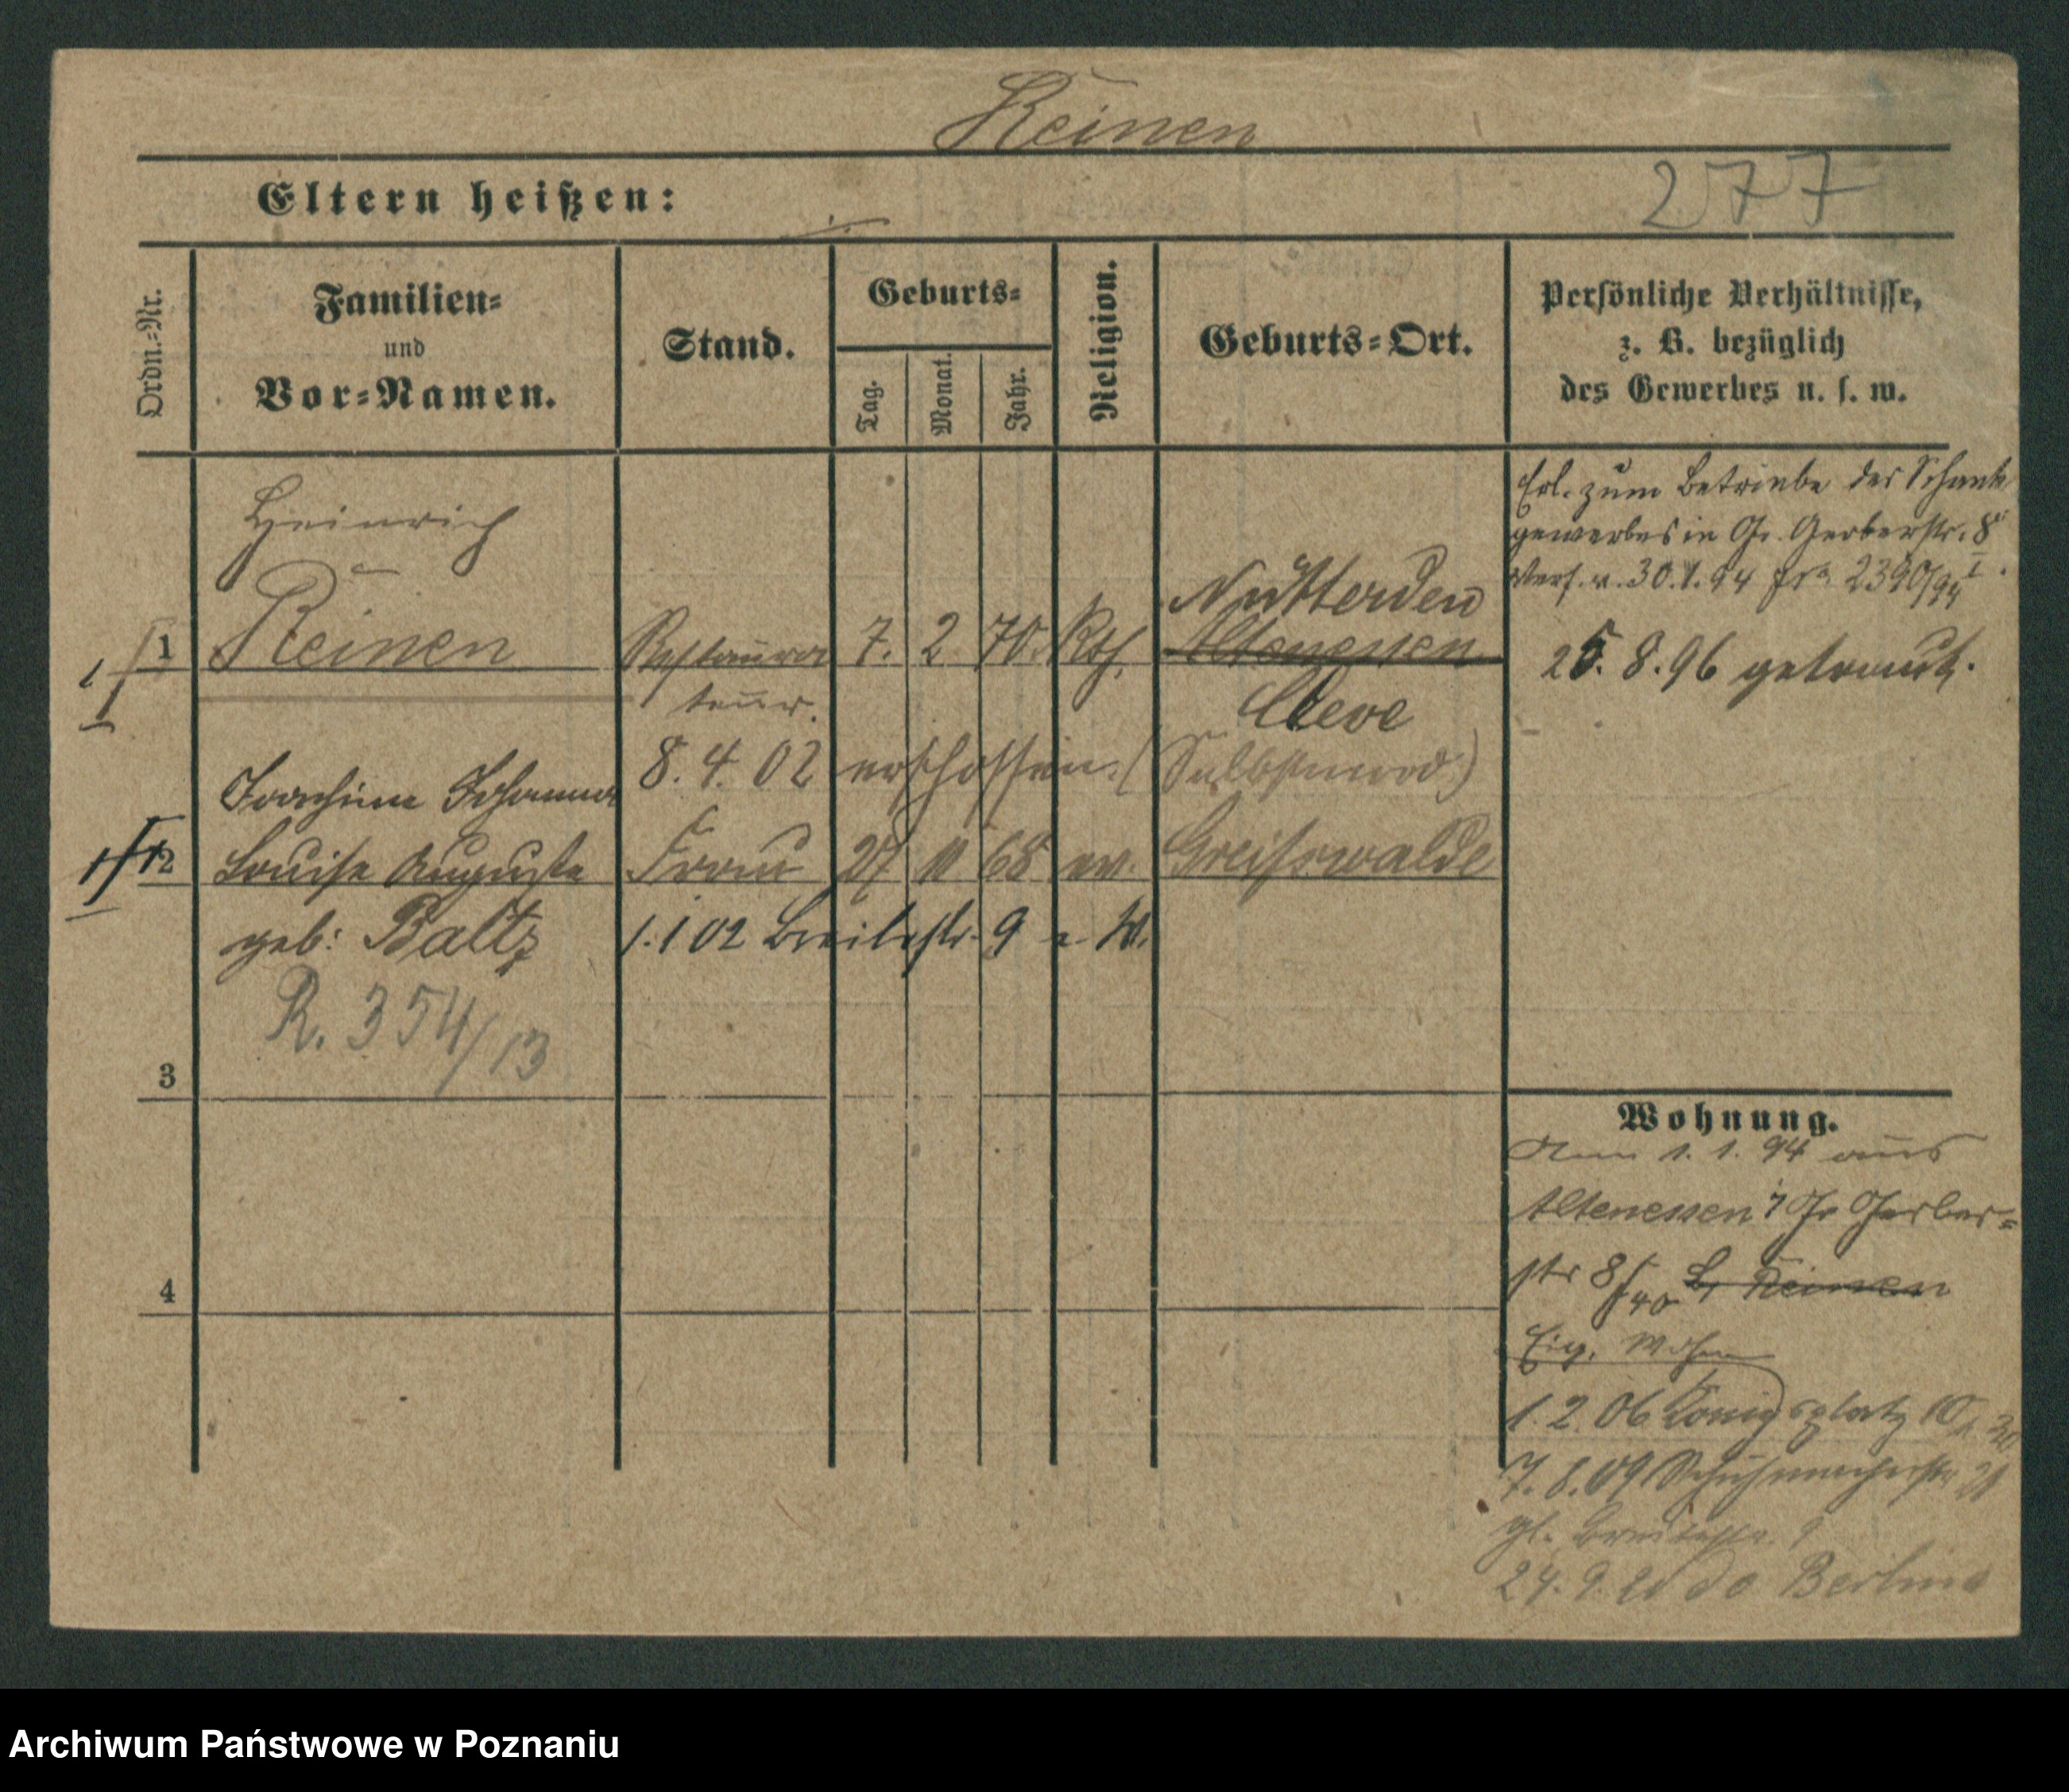 Reinen
Eltern heißen:
277
Ordn.-Nr.
Familien-
und
Vor-Namen.
Stand.
Geburts-
Tag.
Monat.
Jahr.
Religion.
Geburts-Ort.
Persönliche Verhältnisse,
z. B. bezüglich
des Gewerbes u. s. w.
Heinrich
1 Reinen Restaura 7. 2 70. Kth.
teur.
Nütterden
Altenessen
Cleve
Erl. zum Betriebe der Schank
gewerbes in Gr. Gerberstr. 8
Verf. v. 30.1.94 2390/94 I.
25. 8. 96 getraut.
8. 4. 02 erschossen. (Selbstmord)
Joachime Johanna
2 Louise Auguste Frau 27 11 68 ev. Greifswalde
geb: Baltz 1.1 02 Breitestr. 9 e. W.
R. 354/13
3
4
Wohnung.
1. 1. 94 aus
Altenessen Gr Gerber=
str 8 Reinen
Eig. Wohn
1. 2. 06 Königsplatz 10
7. 8. 09 Schuhmacherstr
Breitestr. 9
24. 9. Berlin
Archiwum Państwowe w Poznaniu